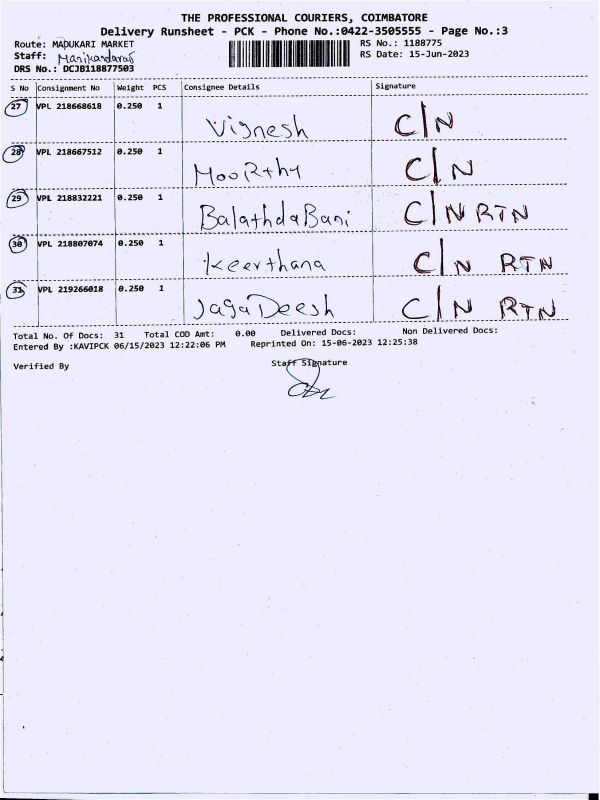 THE PROFESSIONAL COURIERS, COIMBATORE
Delivery Runsheet - PCK - Phone No.:0422-3505555 - Page No.:3
Route: MADUKARI MARKET RS No.: 1188775
Staff: RS Date: 15-Jun-2023
DRS No.: DCJB118877503
S No Consignment No Weight PCS Consignee Details Signature
27 VPL 218668618 0.250 1 Vignesh C/N
28 VPL 218667512 0.250 1 MooRthy C/N
29 VPL 218832221 0.250 1 BalathdaBani C/N RTN
30 VPL 218807074 0.250 1 Keerthana C/N RTN
31 VPL 219266018 0.250 1 JagaDeesh C/N RTN
Total No. Of Docs: 31 Total COD Amt: 0.00 Delivered Docs: Non Delivered Docs:
Entered By :KAVIPCK 06/15/2023 12:22:06 PM Reprinted On: 15-06-2023 12:25:38
Verified By Staff Signature